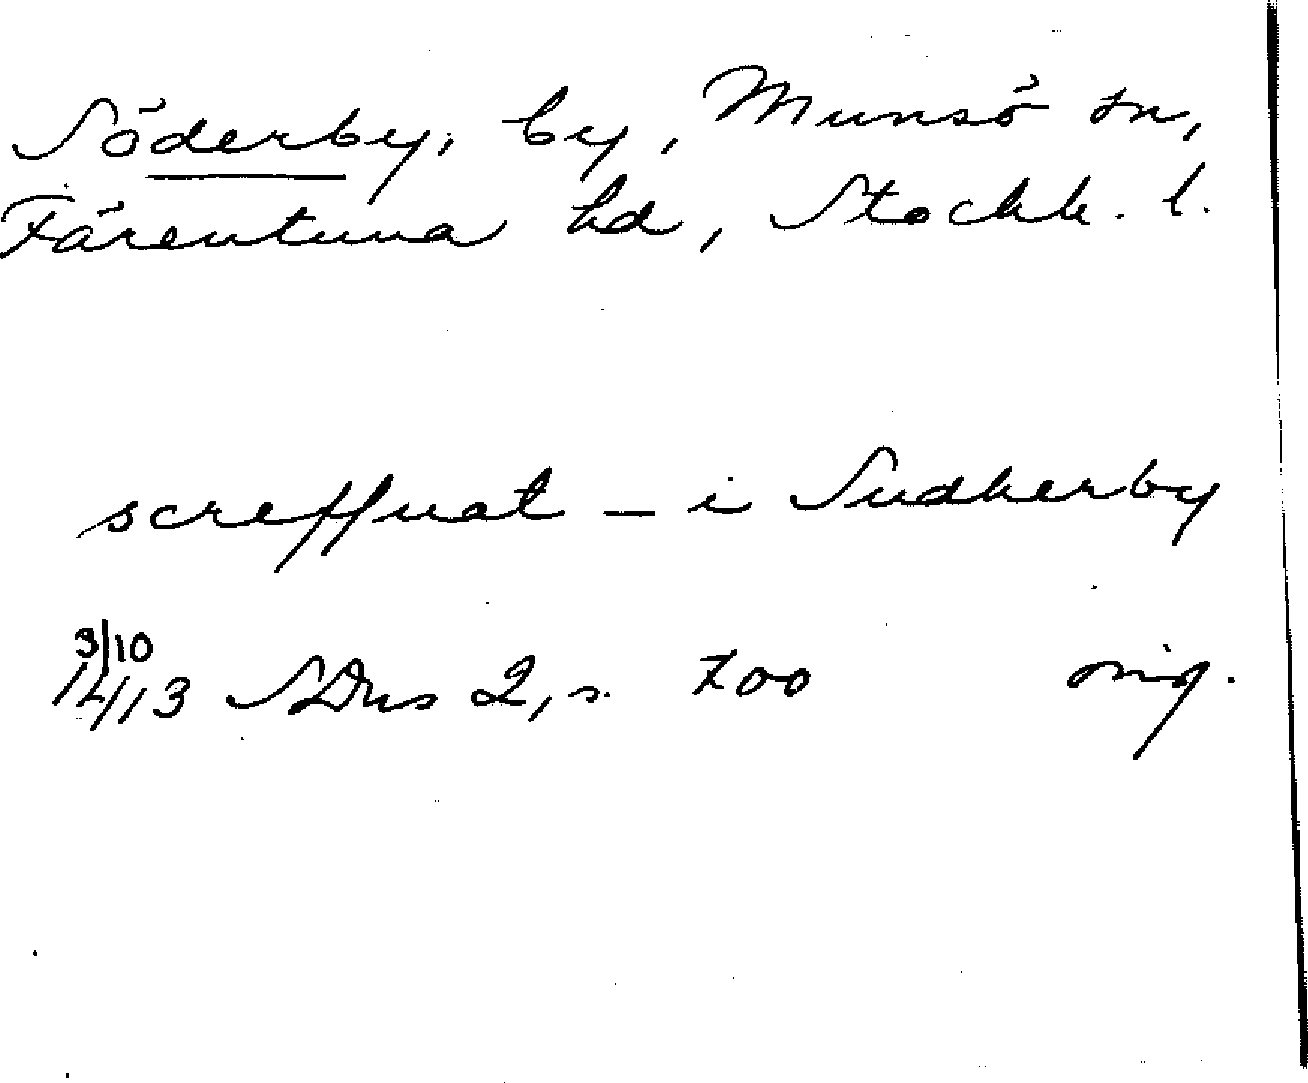 Söderby, by, Munsö sn,
Färentuna hd, Stockh. l.
screffuat - i Sudherby
3/10
1413 SDns 2, s. 700 orig.